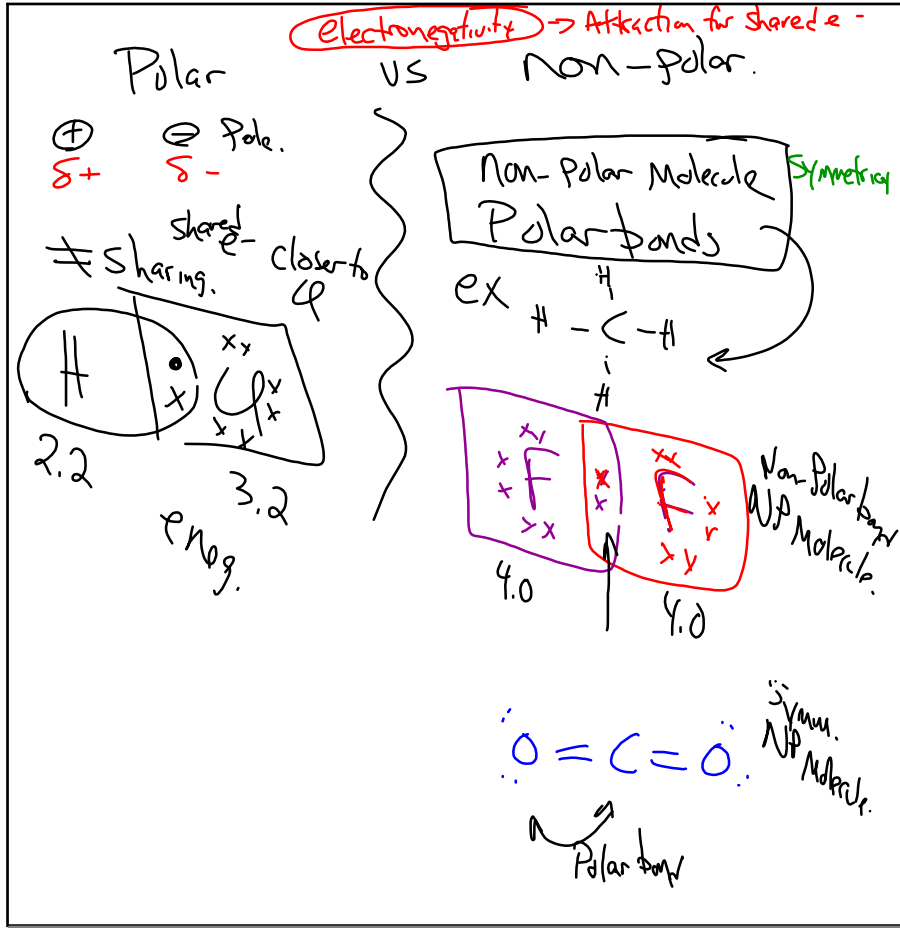 electronegativity → Attraction for shared e -
Polar vs non-polar.
+ - Pole.
δ+ δ -
≠ sharing.
shared e- closer to Cl
H • x Cl
2.2 3.2
eneg.
Non-Polar Molecule
Polar bonds
Symmetrical
ex
H
H - C - H
H
F F
4.0 4.0
Non-Polar bond
NP Molecule.
O = C = O
Symm.
NP Molecule.
Polar bond